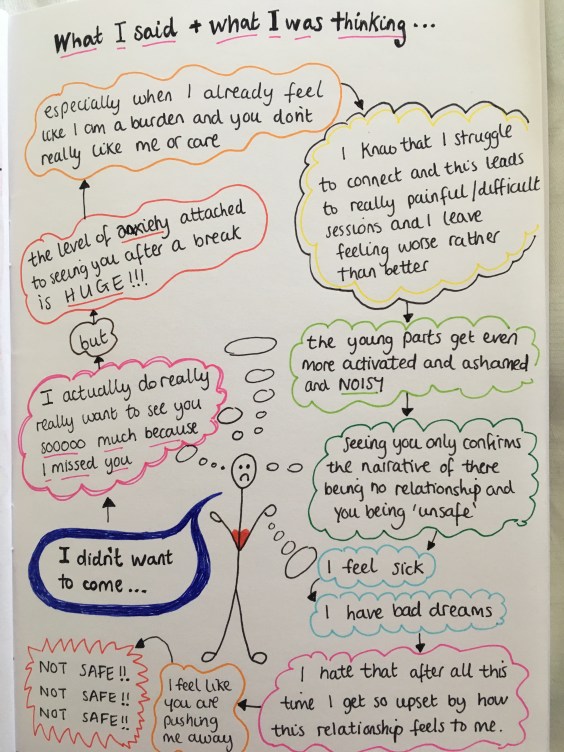 What I said + what I was thinking...
I didn't want
to come...
I actually do really
really want to see you
sooooo much because
I missed you
but
the level of anxiety attached
to seeing you after a break
is HUGE!!!
especially when I already feel
like I am a burden and you don't
really like me or care
I know that I struggle
to connect and this leads
to really painful/difficult
sessions and I leave
feeling worse rather
than better
the young parts get even
more activated and ashamed
and NOISY
Seeing you only confirms
the narrative of there
being no relationship and
you being 'unsafe'
I feel sick
I have bad dreams
I hate that after all this
time I get so upset by how
this relationship feels to me.
I feel like
you are
pushing
me away
NOT SAFE!!
NOT SAFE!!
NOT SAFE!!